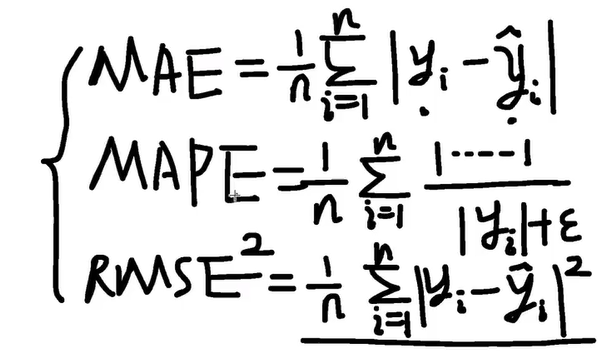 MAE = 1/n ∑_{i=1}^{n} |y_i - ŷ_i|
MAPE = 1/n ∑_{i=1}^{n} |-----| / (|y_i| + ε)
RMSE² = 1/n ∑_{i=1}^{n} |y_i - ŷ_i|²